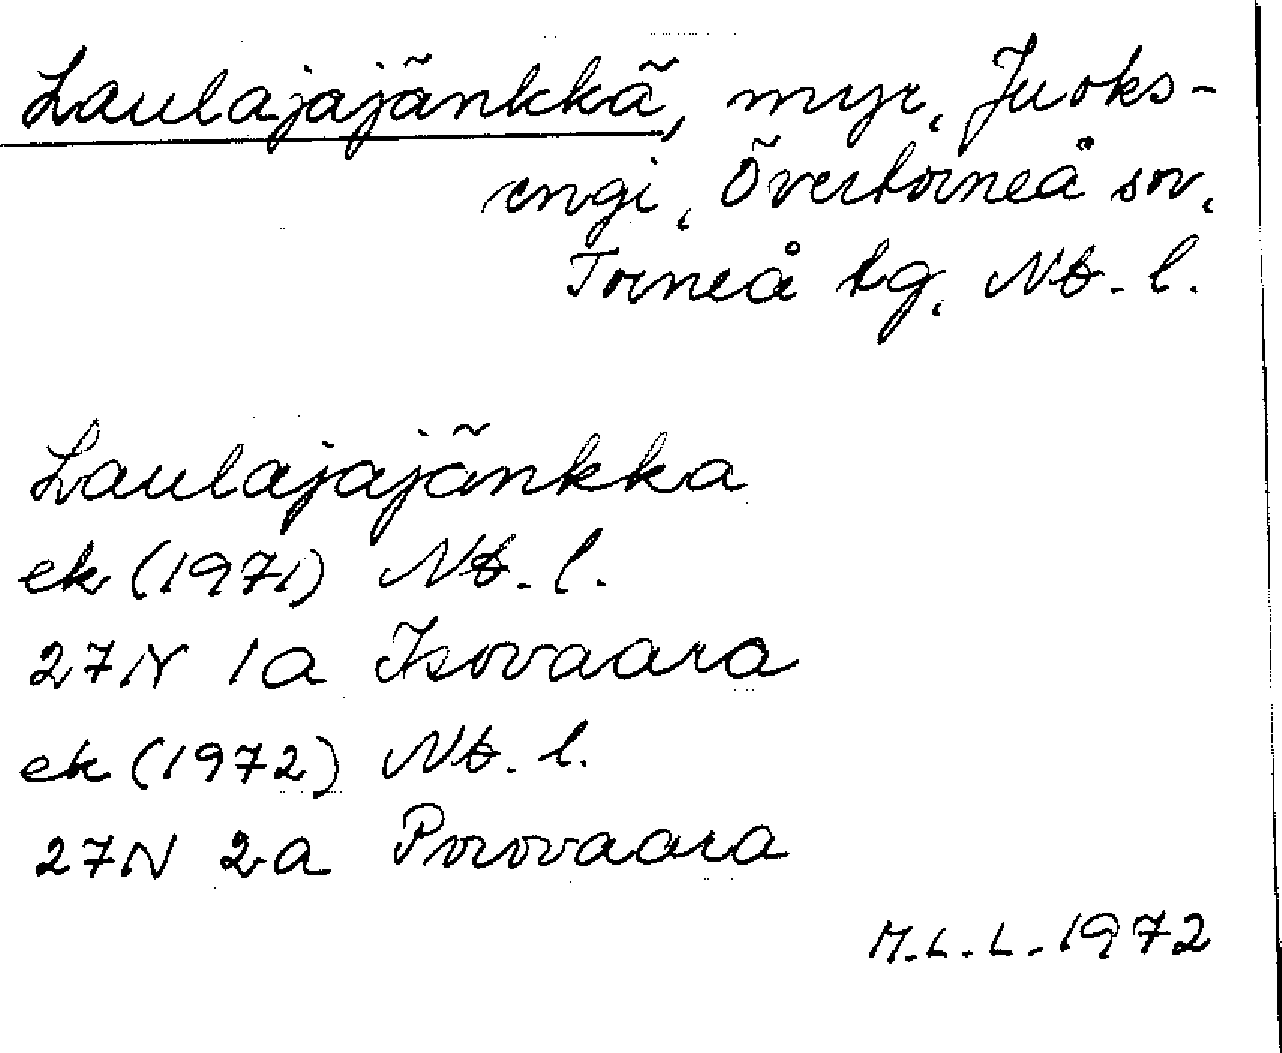 Laulajajänkkä, myr, Juoks-
engi, Övertorneå sn,
Torneå tg, Nb. l.
Laulajajänkka
ek (1971) Nb. l.
27N 1a Isovaara
ek (1972) Nb. l.
27N 2a Porovaara
M.L.L. 1972